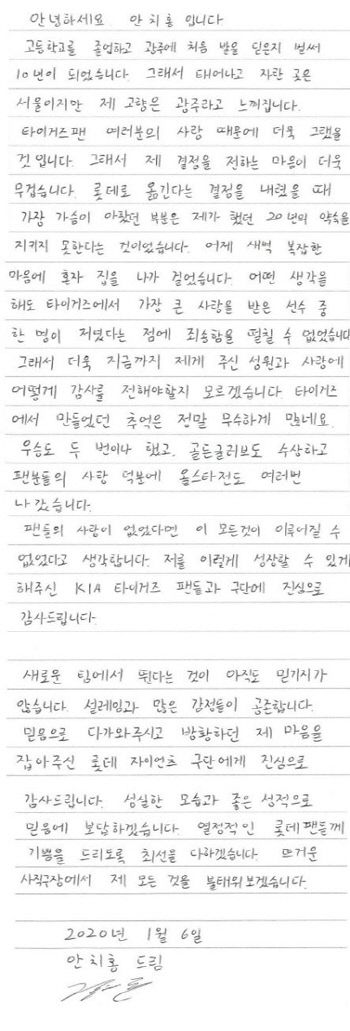 안녕하세요 안치홍 입니다
고등학교를 졸업하고 광주에 처음 발을 딛은지 벌써
10년이 되었습니다. 그래서 태어나고 자란 곳은
서울이지만 제 고향은 광주라고 느껴집니다.
타이거즈팬 여러분의 사랑 때문에 더욱 그랬을
것 입니다. 그래서 제 결정을 전하는 마음이 더욱
무겁습니다. 롯데로 옮긴다는 결정을 내렸을 때
가장 가슴이 아팠던 부분은 제가 했던 20년의 약속을
지키지 못한다는 것이었습니다. 어제 새벽 복잡한
마음에 혼자 집을 나가 걸었습니다. 어떤 생각을
해도 타이거즈에서 가장 큰 사랑을 받은 선수 중
한 명이 저였다는 점에 죄송함을 떨칠 수 없었습니다
그래서 더욱 지금까지 제게 주신 성원과 사랑에
어떻게 감사를 전해야할지 모르겠습니다. 타이거즈
에서 만들었던 추억은 정말 무수하게 많네요.
우승도 두 번이나 했고. 골든글러브도 수상하고
팬분들의 사랑 덕분에 올스타전도 여러번
나갔습니다.
팬들의 사랑이 없었다면 이 모든것이 이루어질 수
없었다고 생각합니다. 저를 이렇게 성장할 수 있게
해주신 KIA 타이거즈 팬들과 구단에 진심으로
감사드립니다.
새로운 팀에서 뛴다는 것이 아직도 믿기지가
않습니다. 설레임과 많은 감정들이 공존합니다.
믿음으로 다가와주시고 방황하던 제 마음을
잡아주신 롯데 자이언츠 구단에게 진심으로
감사드립니다. 성실한 모습과 좋은 성적으로
믿음에 보답하겠습니다. 열정적인 롯데팬들께
기쁨을 드리도록 최선을 다하겠습니다. 뜨거운
사직구장에서 제 모든 것을 불태워보겠습니다.
2020년 1월 6일
안치홍 드림